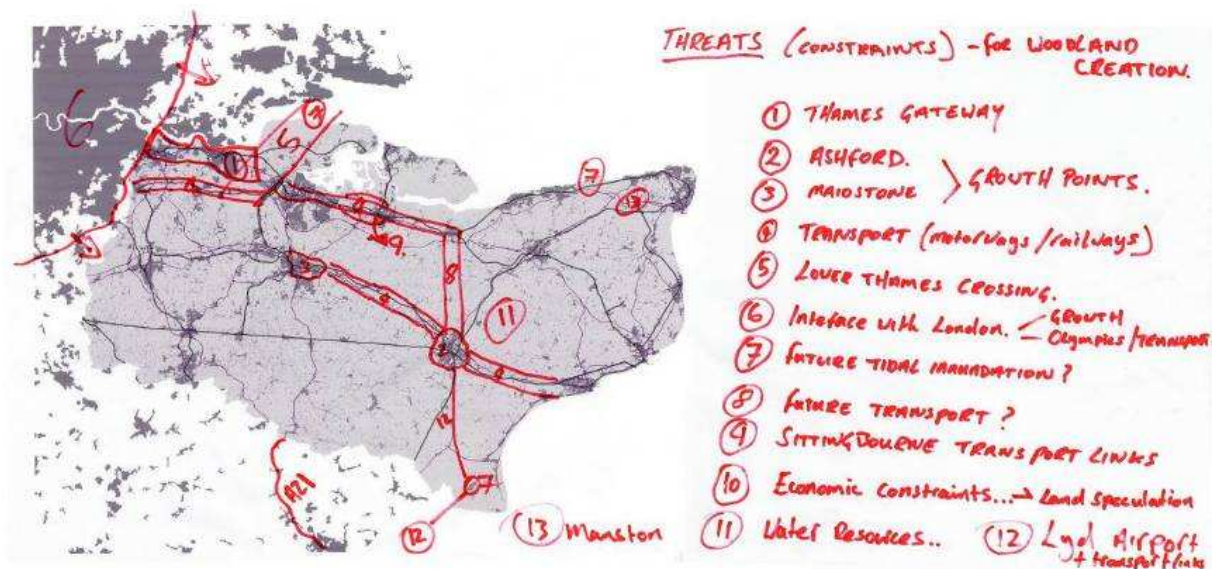 THREATS (CONSTRAINTS) - for WOODLAND
CREATION.
① THAMES GATEWAY
② ASHFORD.
③ MAIDSTONE
GROWTH POINTS.
④ TRANSPORT (motorways/railways)
⑤ LOWER THAMES CROSSING.
⑥ Interface with London. - GROWTH
- Olympics/TRANSPORT
⑦ FUTURE TIDAL INNUNDATION?
⑧ FUTURE TRANSPORT?
⑨ SITTINGBOURNE TRANSPORT LINKS
⑩ Economic constraints... → Land speculation
⑪ Water Resources..
⑫ Lyd Airport
+ transport links
⑬ Manston
6
①
5
4
7
13
9.
3
4
8
11
2
4
12
7
A21
12